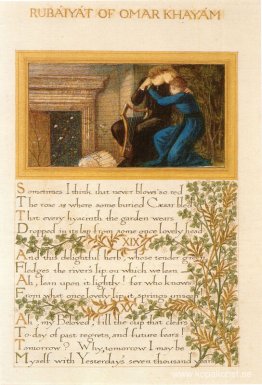 RUBÁIYÁT OF OMAR KHAYÁM
Sometimes I think that never blows so red
The rose as where some buried Cæsar bled
That every hyacinth the garden wears
Dropped in its lap from some once lovely head
XIX
And this delightful herb, whose tender green
Fledges the river's lip on which we lean
Ah, lean upon it lightly! for who knows
From what once lovely lip it springs unseen
XX
Ah, my Beloved, fill the cup that clears
To-day of past regrets, and future fears
Tomorrow? Why, tomorrow I may be
Myself with Yesterday's seven thousand years
www.kopiakonst.se